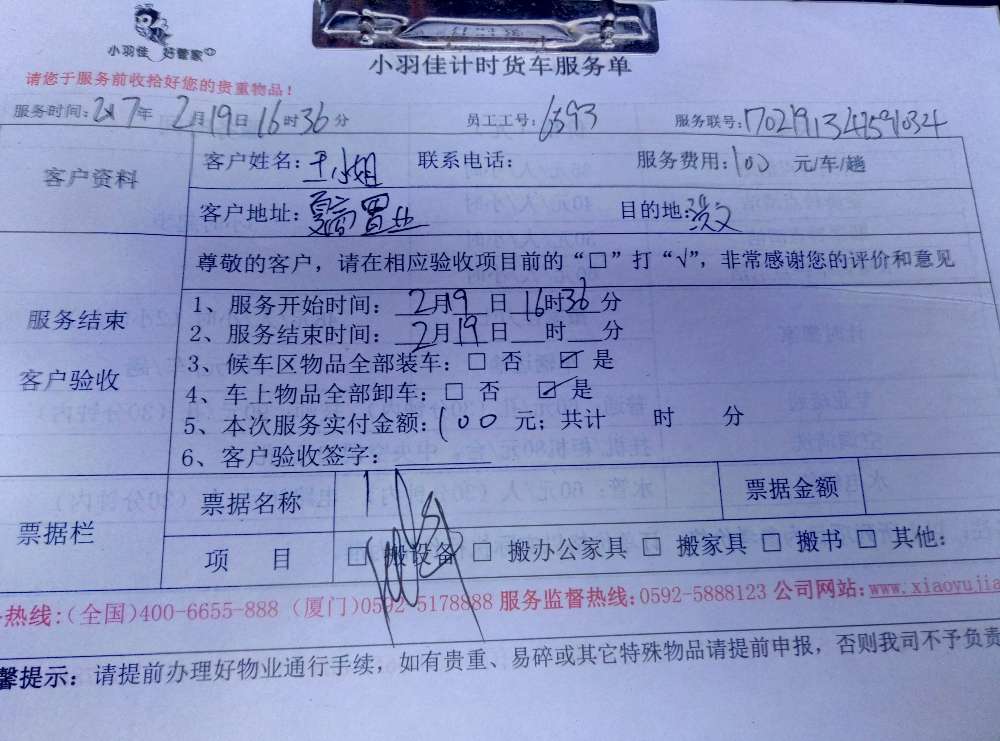 小羽佳 好管家
小羽佳计时货车服务单
请您于服务前收拾好您的贵重物品！
服务时间：2017年 2月19日16时36分 员工工号：6393 服务联号：
客户资料
客户姓名：王小姐 联系电话： 服务费用：100 元/车/趟
客户地址：置业 目的地：
服务结束
客户验收
尊敬的客户，请在相应验收项目前的“□”打“√”，非常感谢您的评价和意见
1、服务开始时间：2月9日16时36分
2、服务结束时间：2月19日 时 分
3、候车区物品全部装车：□ 否 ☑ 是
4、车上物品全部卸车：□ 否 ☑ 是
5、本次服务实付金额：100 元；共计 时 分
6、客户验收签字：
票据栏
票据名称 票据金额
项 目 □ 搬设备 □ 搬办公家具 □ 搬家具 □ 搬书 □ 其他：
热线：(全国)400-6655-888 (厦门)0592-5178888 服务监督热线：0592-5888123 公司网站：www.xiaoyujia
馨提示：请提前办理好物业通行手续，如有贵重、易碎或其它特殊物品请提前申报，否则我司不予负责